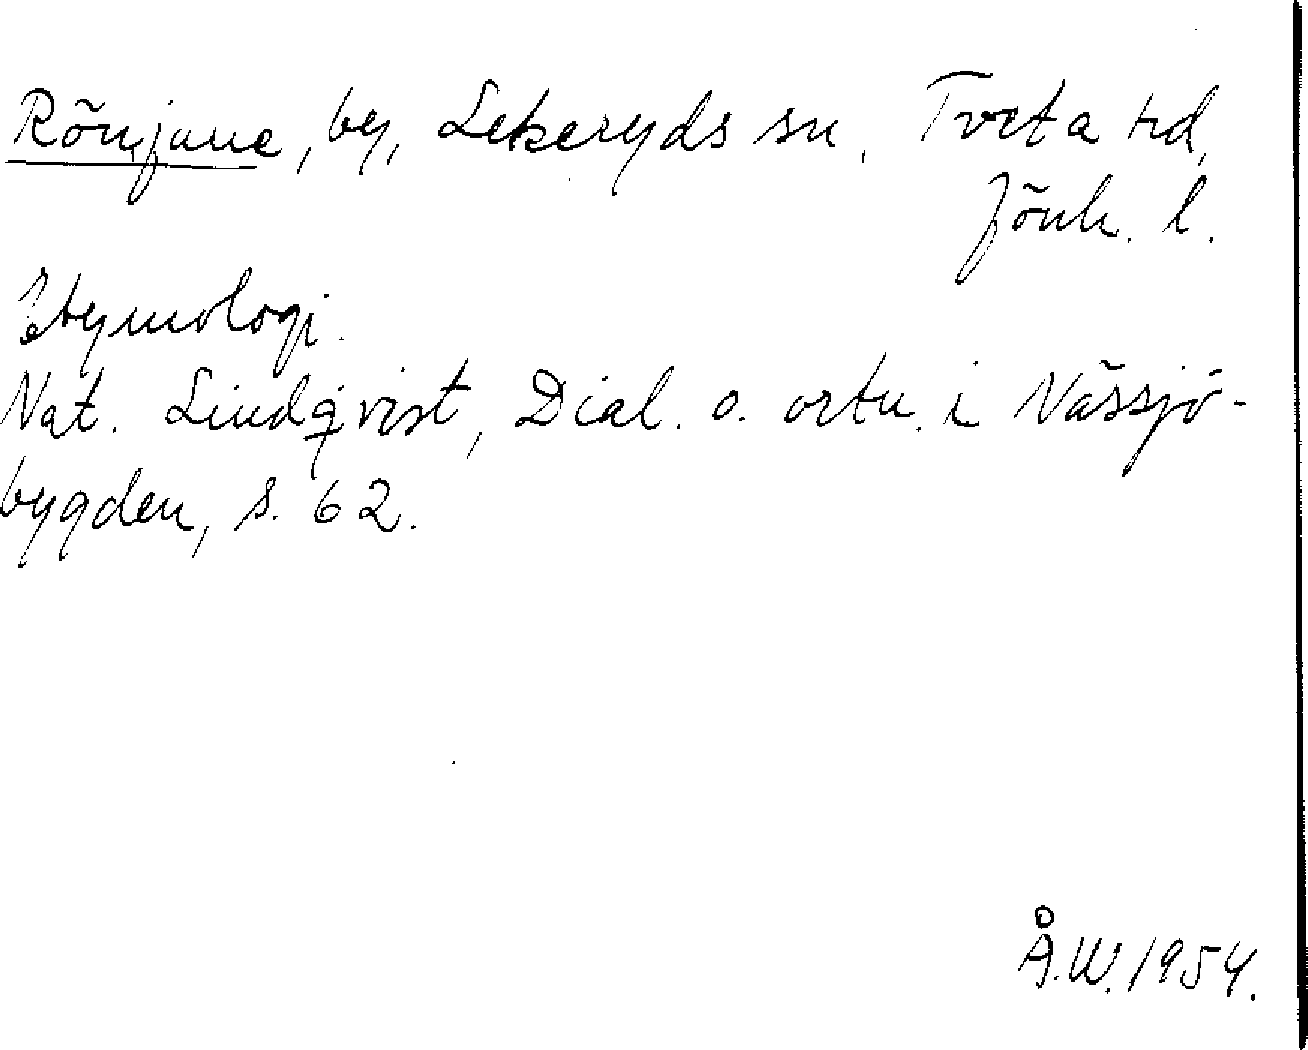 Rönjane, by, Lekeryds sn, Tveta hd,
Jönk. l.
Etymologi.
Nat. Lindqvist, Dial. o. ortn. i Nässjö-
bygden, s. 62.
Å.W. 1954.